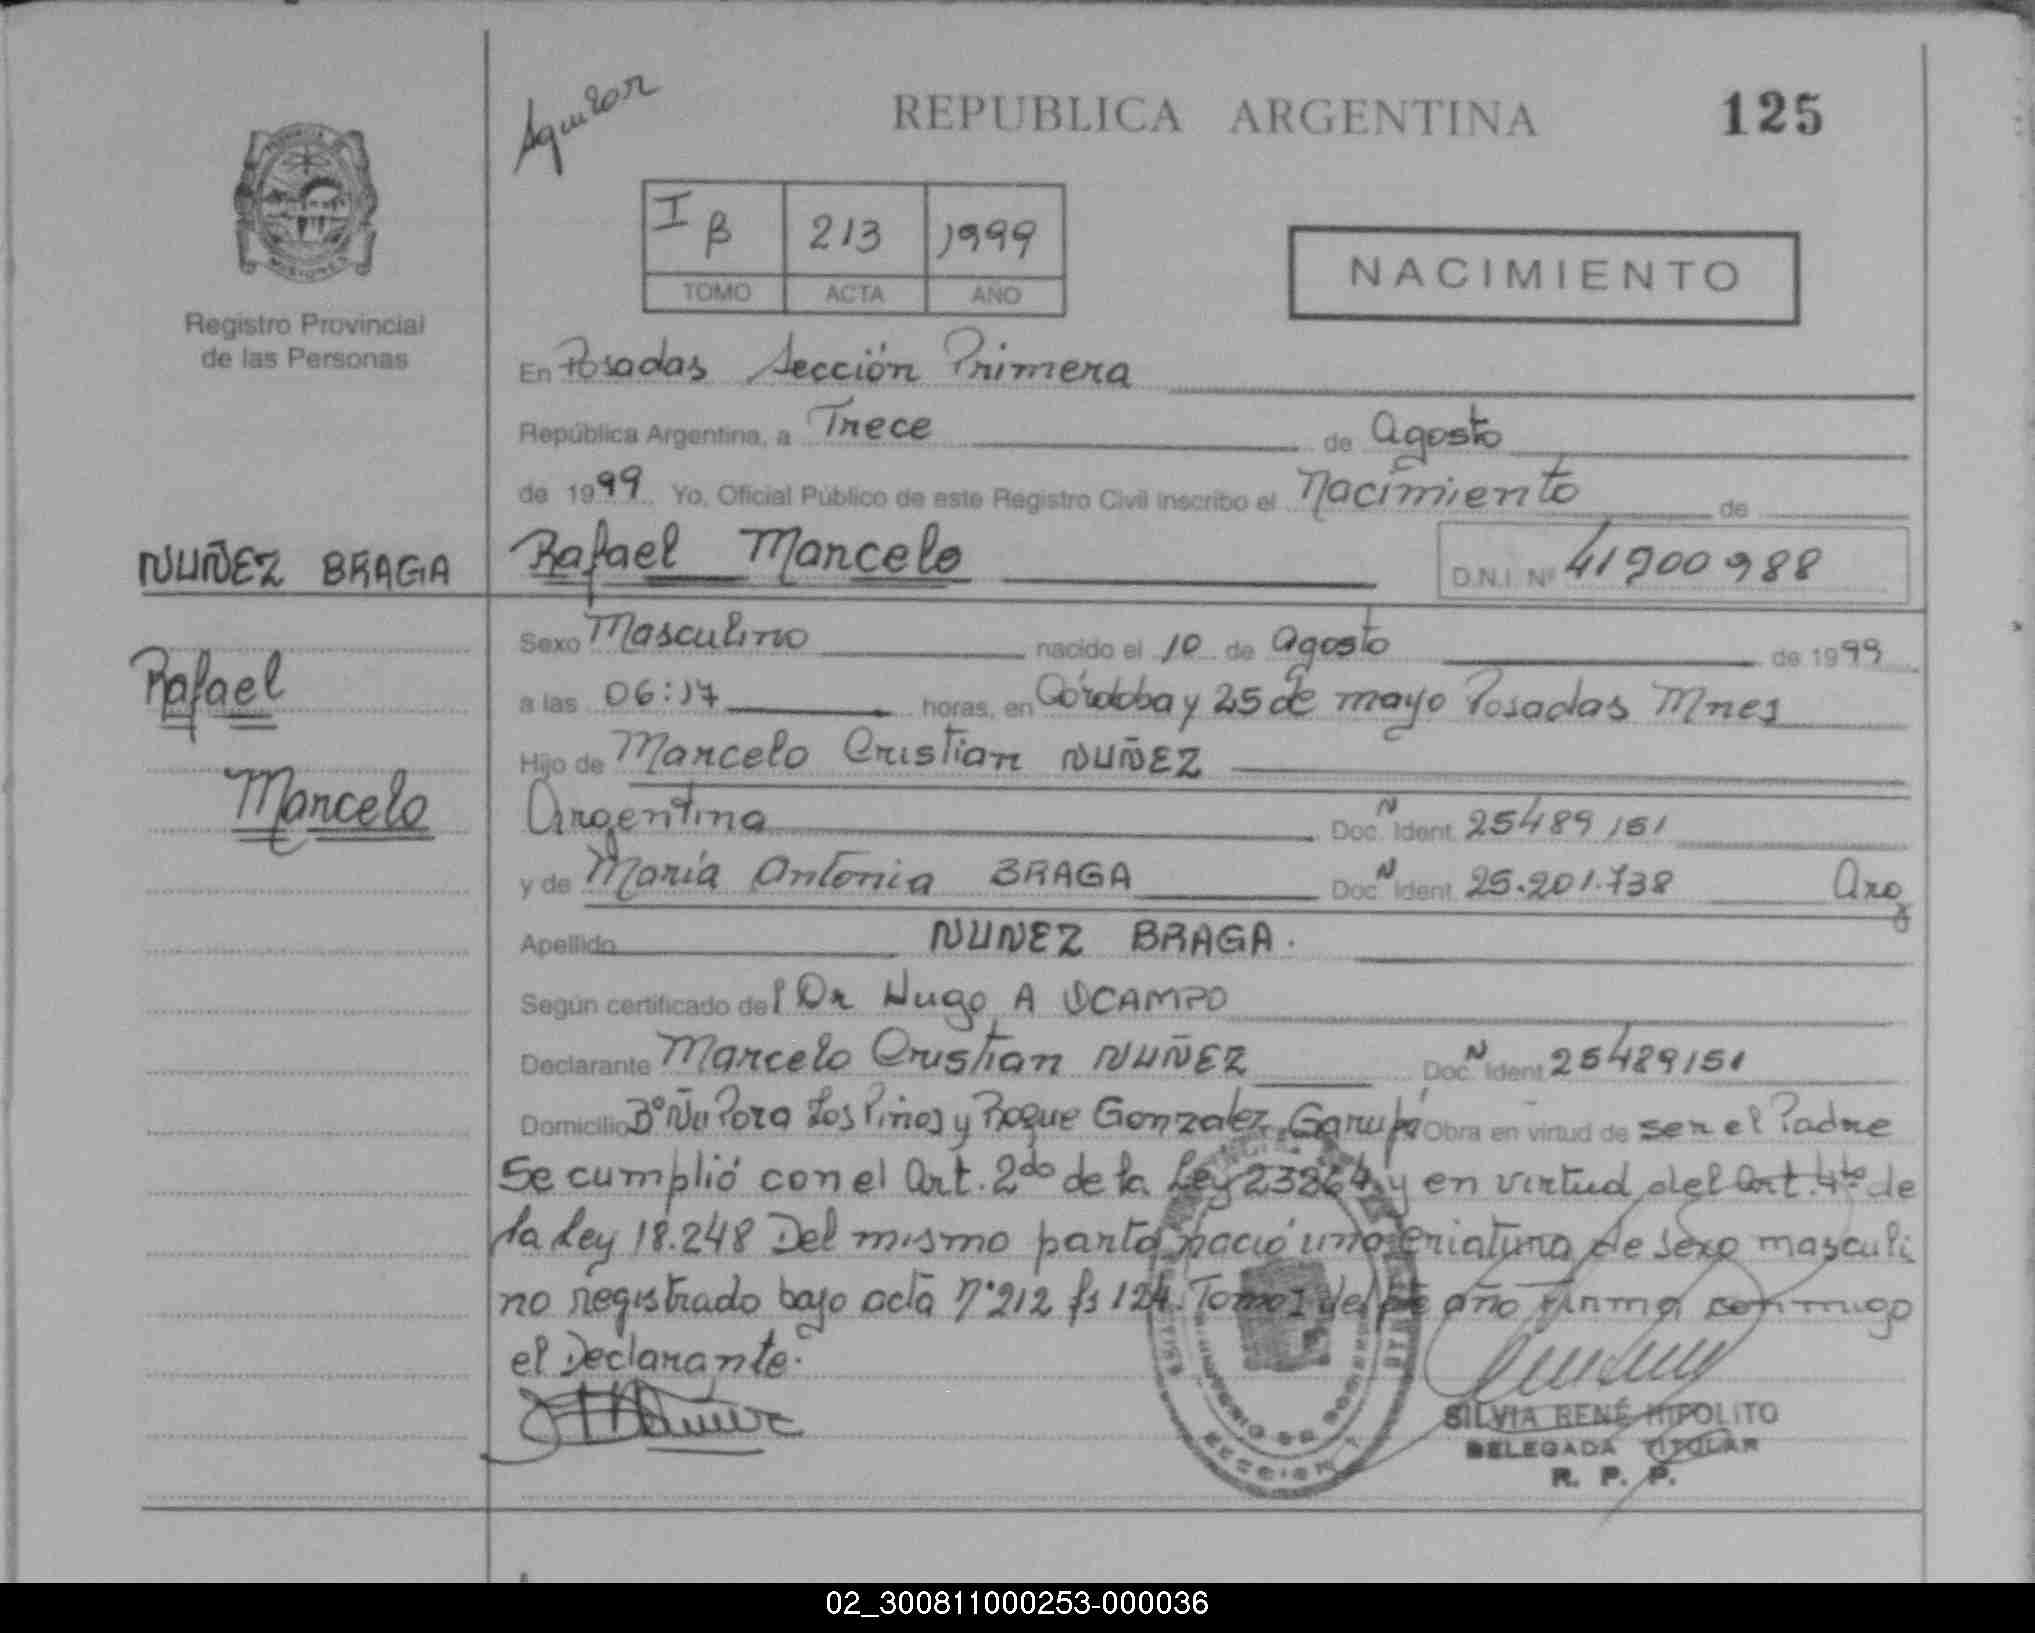 Aguilar
REPUBLICA ARGENTINA
125
I B 213 1999
TOMO ACTA AÑO
NACIMIENTO
MISIONES
Registro Provincial
de las Personas
En Posadas Sección Primera
República Argentina, a Trece de Agosto
de 1999 Yo, Oficial Público de este Registro Civil inscribo el Nacimiento de
NUÑEZ BRAGA
Rafael Marcelo
D.N.I. Nº 41900988
Rafael
Marcelo
Sexo Masculino nacido el 10 de Agosto de 1999
a las 06:17 horas, en Córdoba y 25 de mayo Posadas Mnes
Hijo de Marcelo Cristian NUÑEZ
Argentina Doc. N Ident. 25489151
y de María Antonia BRAGA Doc. N Ident. 25.201.738 Arg
Apellido NUNEZ BRAGA.
Según certificado del Dr Hugo A OCAMPO
Declarante Marcelo Cristian NUÑEZ Doc. N Ident. 25489151
Domicilio Bº Ñu Pora Los Pinos y Roque Gonzalez Garupá Obra en virtud de ser el Padre
Se cumplió con el Art. 2do de la Ley 23264 y en virtud del Art. 4to de
la Ley 18.248 Del mismo parto nació una criatura de sexo masculi
no registrado bajo acta Nº 212 fs 124. Tomo I del pte año firma conmigo
el Declarante.
MINISTERIO DE GOBIERNO
SECCION 1
SILVIA RENÉ HIPOLITO
DELEGADA TITULAR
R. P. P.
02_300811000253-000036